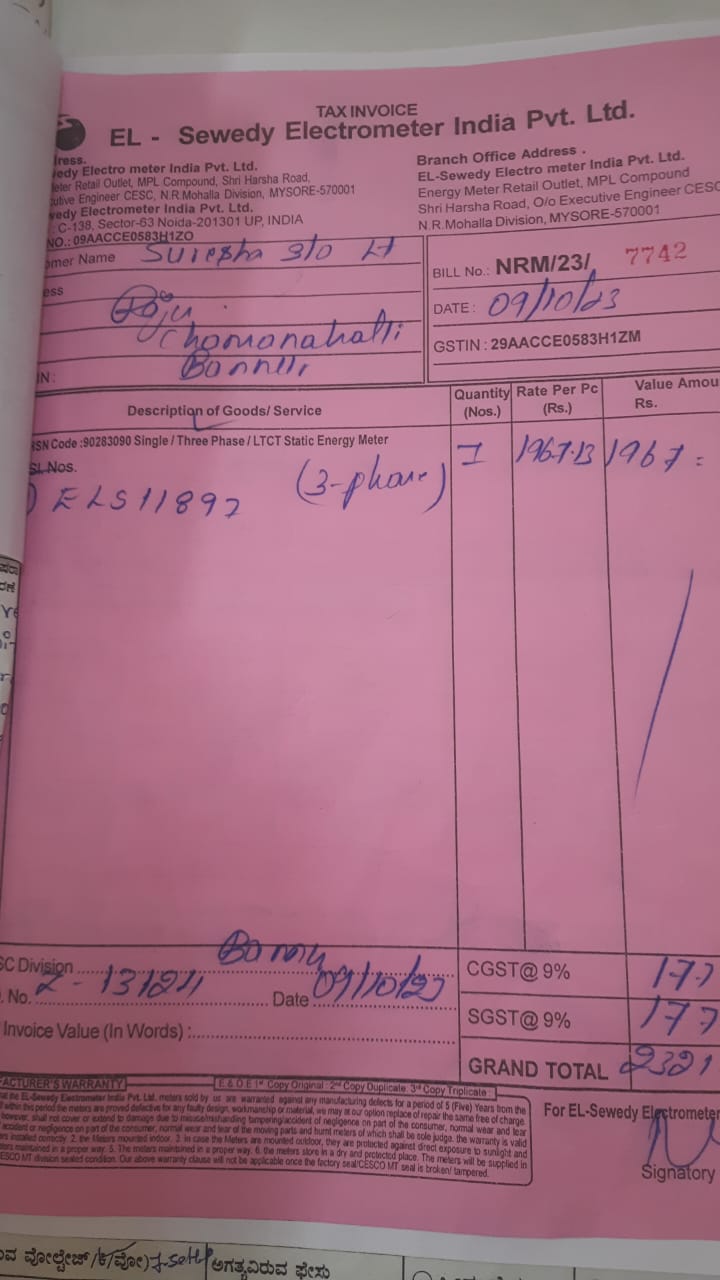 TAX INVOICE
EL - Sewedy Electrometer India Pvt. Ltd.
ress.
wedy Electro meter India Pvt. Ltd.
eter Retail Outlet, MPL Compound, Shri Harsha Road,
cutive Engineer CESC, N.R.Mohalla Division, MYSORE-570001
wedy Electrometer India Pvt. Ltd.
: C-138, Sector-63 Noida-201301 UP, INDIA
NO.: 09AACCE0583H1ZO
Branch Office Address .
EL-Sewedy Electro meter India Pvt. Ltd.
Energy Meter Retail Outlet, MPL Compound
Shri Harsha Road, O/o Executive Engineer CESC
N.R.Mohalla Division, MYSORE-570001
omer Name Suresha S/o Lt
ess Raju
Chomanahalli
IN :
BILL No.: NRM/23/ 7742
DATE : 09/10/23
GSTIN : 29AACCE0583H1ZM
Description of Goods/ Service
Quantity (Nos.)
Rate Per Pc (Rs.)
Value Amou
Rs.
HSN Code :90283090 Single / Three Phase / LTCT Static Energy Meter
1 1967.13 1967 =
SI. Nos.
(3-phase)
1) ELS11897
SC Division
No. 13124 Date 09/10/23
Invoice Value (In Words) :
CGST@ 9% 177
SGST@ 9% 177
GRAND TOTAL 2321
FACTURER'S WARRANTY
E. & O.E 1st Copy Original : 2nd Copy Duplicate 3rd Copy Triplicate :
at the EL-Sewedy Electrometer India Pvt. Ltd. meters sold by us are warranted against any manufacturing defects for a period of 5 (Five) Years from the
if within this period the meters are proved defective for any faulty design, workmanship or material, we may at our option replace of repair the same free of charge.
however, shall not cover or extend to damage due to misuse/mishandling tampering/accident of negligence on part of the consumer, normal wear and tear
accident or negligence on part of the consumer, normal wear and tear of the moving parts and burnt meters of which shall be sole judge. the warranty is valid
ers installed correctly. 2. the Meters mounted indoor. 3. In case the Meters are mounted outdoor, they are protected against direct exposure to sunlight and
eters maintained in a proper way. 5. The meters maintained in a proper way. 6. the meters store in a dry and protected place. The meters will be supplied in
CESCO MT division sealed condition. Our above warranty clause will not be applicable once the factory seal/CESCO MT seal is broken/ tampered.
For EL-Sewedy Electrometer
Signatory
ವೋಲ್ಟೇಜ್
ಅಗತ್ಯವಿರುವ ಫೇಸು